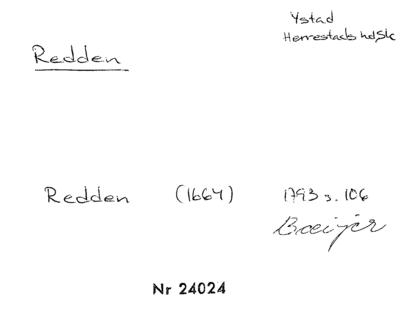 Ystad
Herrestads hd, Sk
Redden
Redden (1664) 1793 s. 106
Boeijer
Nr 24024